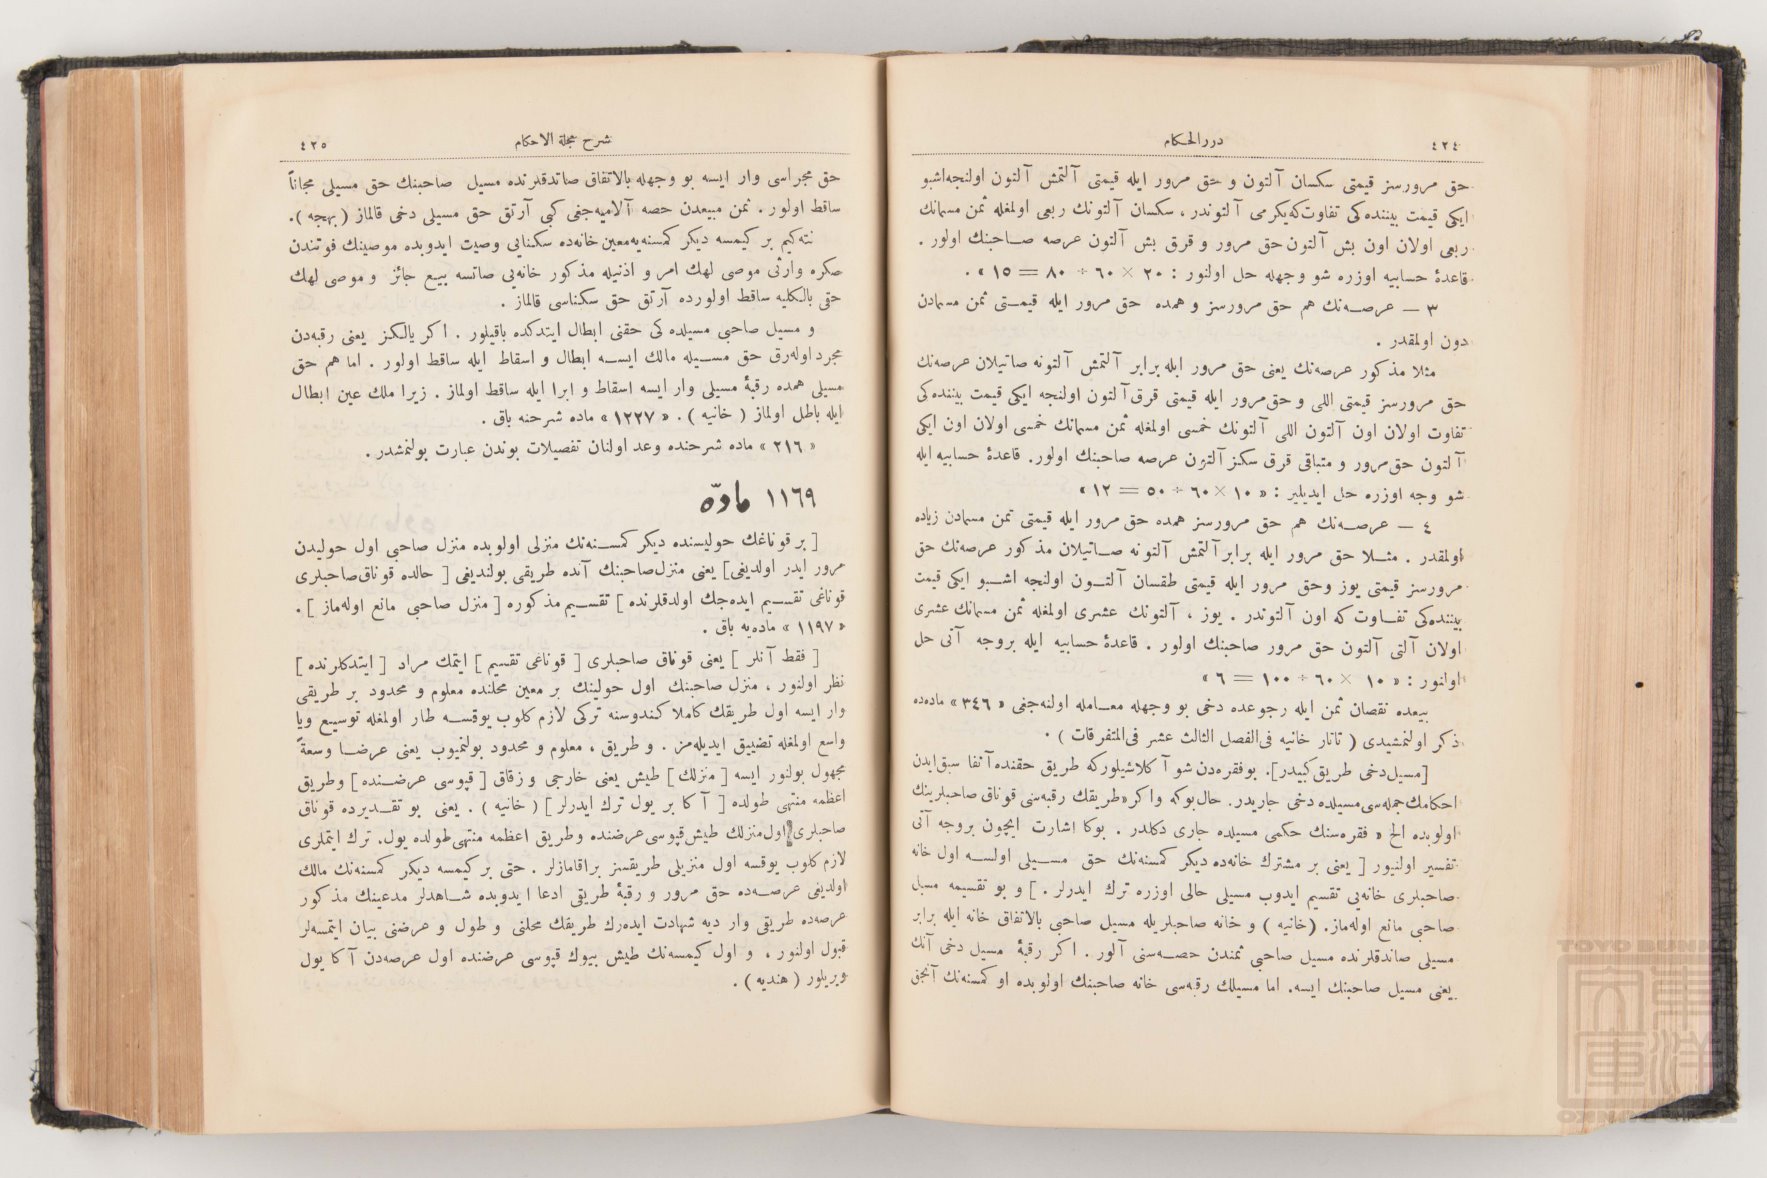 ٤٢٤
دررالحكام
حق مرورسز قیمتی سكسان آلتون و حق مرور ایله قیمتی آلتمش آلتون اولنجه‌اشبو
ایكی قیمت بیننده‌كی تفاوت‌كه‌یكرمی آلتوندر ، سكسان آلتونك ربعی اولمغله ثمن مسمانك
ربعی اولان اون بش آلتون حق مرور و قرق بش آلتون عرصه صاحبنك اولور .
قاعدهٔ حسابیه اوزره شو وجهله حل اولنور : ٢٠ × ٦٠ ÷ ٨٠ = ١٥ » .
٣ — عرصه‌نك هم حق مرورسز و همده حق مرور ایله قیمتی ثمن مسمادن
دون اولمقدر .
مثلا مذكور عرصه‌نك یعنی حق مرور ایله برابر آلتمش آلتونه صاتیلان عرصه‌نك
حق مرورسز قیمتی اللی و حق‌مرور ایله قیمتی قرق‌آلتون اولنجه ایكی قیمت بیننده‌كی
تفاوت اولان اون آلتون اللی آلتونك خمسی اولمغله ثمن مسمانك خمسی اولان اون ایكی
آلتون حق‌مرور و متباقی قرق سكز آلتون عرصه صاحبنك اولور. قاعدهٔ حسابیه ایله
شو وجه اوزره حل ایدیلیر : « ١٠ × ٦٠ ÷ ٥٠ = ١٢ »
٤ — عرصه‌نك هم حق مرورسز همده حق مرور ایله قیمتی ثمن مسمادن زیاده
اولمقدر . مثلا حق مرور ایله برابر آلتمش آلتونه صاتیلان مذكور عرصه‌نك حق
مرورسز قیمتی یوز وحق مرور ایله قیمتی طقسان آلتون اولنجه اشبو ایكی قیمت
بیننده‌كی تفاوت كه اون آلتوندر . یوز ، آلتونك عشری اولمغله ثمن مسمانك عشری
اولان آلتی آلتون حق مرور صاحبنك اولور . قاعدهٔ حسابیه ایله بروجه آتی حل
اولنور : « ١٠ × ٦٠ ÷ ١٠٠ = ٦ »
بیعده نقصان ثمن ایله رجوعده دخی بو وجهله معامله اولنه‌جغی « ٣٤٦ » ماده‌ده
ذكر اولنمشیدی ( تاتار خانیه فی‌الفصل الثالث عشر فی‌المتفرقات ) .
[مسیل‌دخی طریق‌كبیدر]. بوفقره‌دن شو آكلاشیلوركه طریق حقنده‌آنفا سبق‌ایدن
احكامك‌جمله‌سی‌مسیلده دخی جاریدر. حال‌بوكه واكر«طریقك رقبه‌سی قوناق صاحبلرینك
اولوبده الخ » فقره‌سنك حكمی مسیلده جاری دكلدر . بوكا اشارت ایچون بروجه آتی
تفسیر اولنیور [ یعنی بر مشترك خانه‌ده دیكر كمسنه‌نك حق مسیلی اولسه اول خانه
صاحبلری خانه‌یی تقسیم ایدوب مسیلی حالی اوزره ترك ایدرلر . ] و بو تقسیمه مسیل
صاحبی مانع اوله‌ماز. (خانیه ) و خانه صاحبلریله مسیل صاحبی بالاتفاق خانه ایله برابر
مسیلی صاتدقلرنده مسیل صاحبی ثمندن حصه‌سنی آلور . اكر رقبهٔ مسیل دخی آنك
یعنی مسیل صاحبنك ایسه. اما مسیلك رقبه‌سی خانه صاحبنك اولوبده او كمسنه‌نك آنجق
شرح مجلة الاحكام
٤٢٥
حق مجراسی وار ایسه بو وجهله بالاتفاق صاتدقلرنده مسیل صاحبنك حق مسیلی مجاناً
ساقط اولور . ثمن مبیعدن حصه آلامیه‌جغی كبی آرتق حق مسیلی دخی قالماز ( بهجه ).
نته‌كیم بر كیمسه دیكر كمسنه‌یه‌معین‌خانه‌ده سكنایی وصیت ایدوبده موصینك فوتندن
صكره وارثی موصی لهك امر و اذنیله مذكور خانه‌یی صاتسه بیع جائز و موصی لهك
حقی بالكلیه ساقط اولورده آرتق حق سكناسی قالماز .
و مسیل صاحبی مسیلده كی حقنی ابطال ایتدكده باقیلور . اكر یالكز یعنی رقبه‌دن
مجرد اوله‌رق حق مسیله مالك ایسه ابطال و اسقاط ایله ساقط اولور . اما هم حق
مسیلی همده رقبهٔ مسیلی وار ایسه اسقاط و ابرا ایله ساقط اولماز . زیرا ملك عین ابطال
ایله باطل اولماز ( خانیه ) . « ١٢٢٧ » ماده شرحنه باق .
« ٢١٦ » ماده شرحنده وعد اولنان تفصیلات بوندن عبارت بولنمشدر .
١١٦٩ مادّه
[ بر قوناغك حولیسنده دیكر كمسنه‌نك منزلی اولوبده منزل صاحبی اول حولیدن
مرور ایدر اولدیغی] یعنی منزل‌صاحبنك آنده طریقی بولندیغی [ حالده قوناق‌صاحبلری
قوناغی تقسیم ایده‌جك اولدقلرنده ] تقسیم مذكوره [ منزل صاحبی مانع اوله‌ماز ] .
« ١١٩٧ » ماده‌یه باق .
[ فقط آنلر ] یعنی قوناق صاحبلری [ قوناغی تقسیم ] ایتمك مراد [ ایتدكلرنده ]
نظر اولنور ، منزل صاحبنك اول حولینك بر معین محلنده معلوم و محدود بر طریقی
وار ایسه اول طریقك كاملا كندوسنه تركی لازم كلوب یوقسه طار اولمغله توسیع ویا
واسع اولمغله تضییق ایدیله‌مز . و طریق ، معلوم و محدود بولنمیوب یعنی عرضا وسعةً
مجهول بولنور ایسه [ منزلك ] طیش یعنی خارجی و زقاق [ قپوسی عرضنده ] وطریق
اعظمه منتهی طولده [ آكا بر یول ترك ایدرلر ] ( خانیه ) . یعنی بو تقدیرده قوناق
صاحبلری اول‌منزلك طیش‌قپوسی‌عرضنده وطریق اعظمه منتهی‌طولده یول. ترك ایتملری
لازم كلوب یوقسه اول منزیلی طریقسز براقامازلر . حتی بر كیمسه دیكر كمسنه‌نك مالك
اولدیغی عرصه‌ده حق مرور و رقبهٔ طریقی ادعا ایدوبده شاهدلر مدعینك مذكور
عرصه‌ده طریقی وار دیه شهادت ایده‌رك طریقك محلنی و طول و عرضنی بیان ایتمسه‌لر
قبول اولنور ، و اول كیمسه‌نك طیش بیوك قپوسی عرضنده اول عرصه‌دن آكا یول
ویریلور ( هندیه ) .
TOYO BUNKO